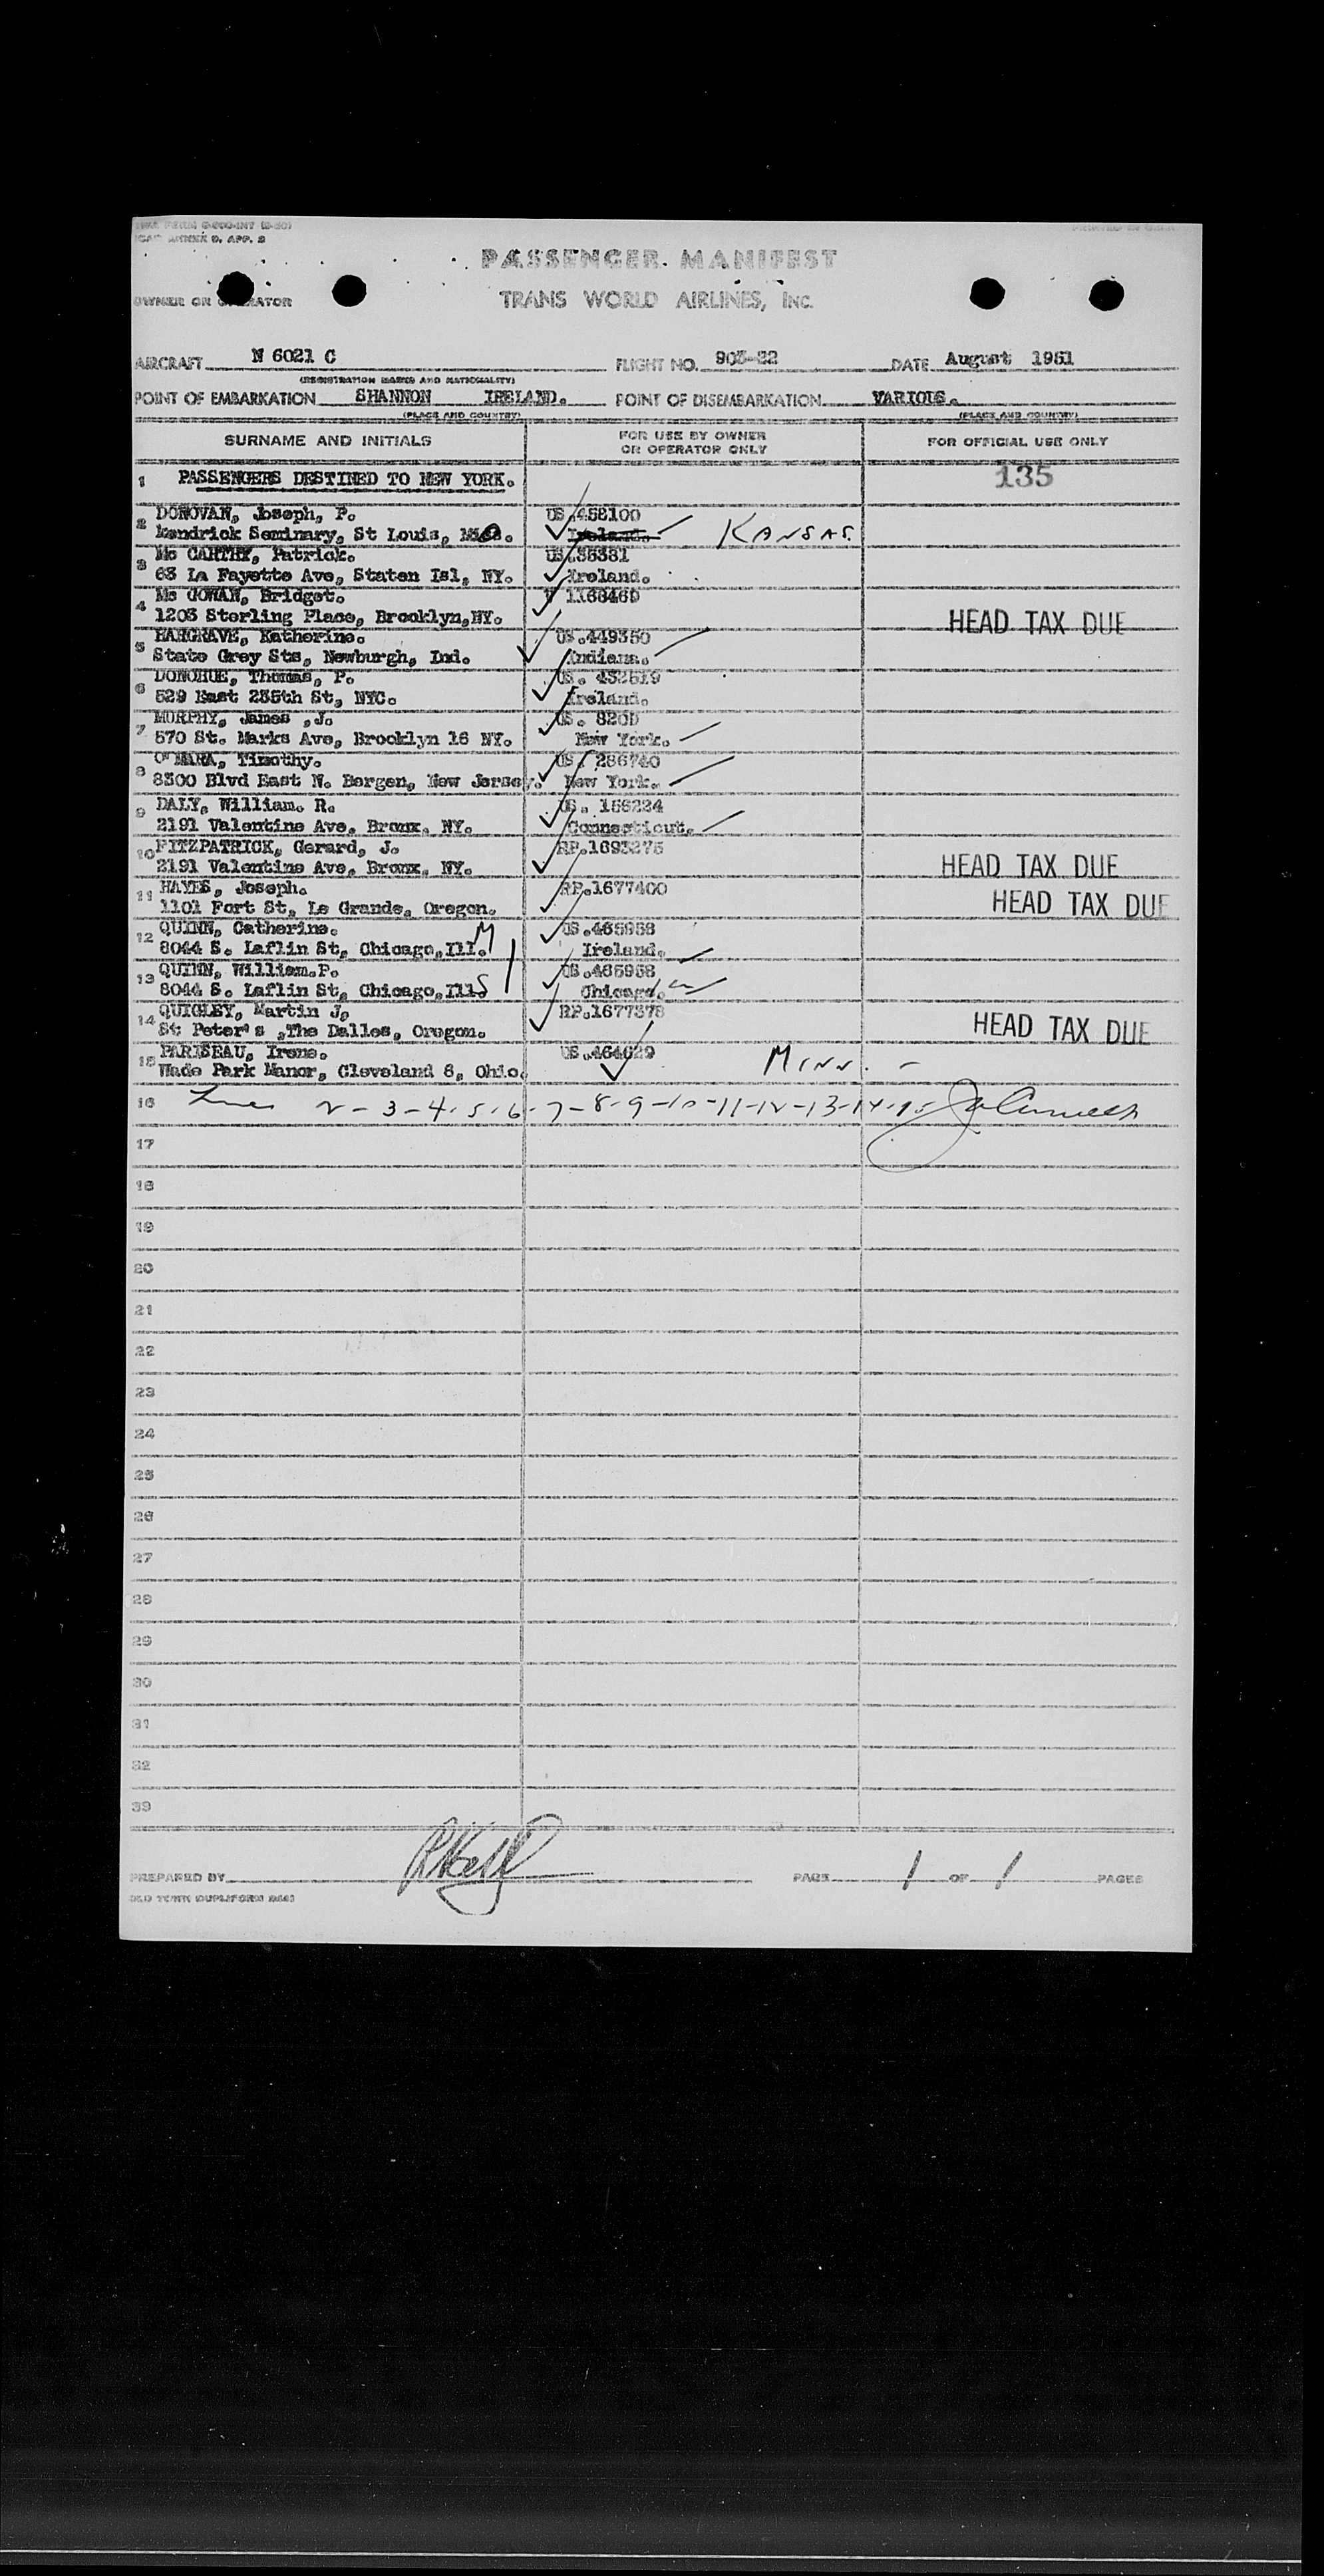 TWA FORM
ICAO ANNEX 9, APP. 2
PASSENGER MANIFEST
OWNER OR OPERATOR
TRANS WORLD AIRLINES, INC.
AIRCRAFT N 6021 C FLIGHT NO. 903-22 DATE August 1951
(REGISTRATION MARKS AND NATIONALITY)
POINT OF EMBARKATION SHANNON IRELAND. POINT OF DISEMBARKATION VARIOUS.
(PLACE AND COUNTRY) (PLACE AND COUNTRY)
SURNAME AND INITIALS FOR USE BY OWNER OR OPERATOR ONLY FOR OFFICIAL USE ONLY
1 PASSENGERS DESTINED TO NEW YORK. 135
2 DONOVAN, Joseph, P. US.458100
Kendrick Seminary, St Louis, Mo. Ireland. KANSAS.
3 Mc CARTHY, Patrick. US.35381
63 La Fayette Ave, Staten Isl, NY. Ireland.
4 Mc GOWAN, Bridget. V 1166469
1203 Sterling Place, Brooklyn,NY. HEAD TAX DUE
5 HARGRAVE, Katherine. US.449350
State Grey Sts, Newburgh, Ind. Indiana.
6 DONOHUE, Thomas, P. US. 432519
529 East 235th St, NYC. Ireland.
7 MURPHY, James ,J. US. 8209
570 St. Marks Ave, Brooklyn 16 NY. New York.
8 O'MARA, Timothy. US. 286740
8300 Blvd East N. Bergen, New Jersey. New York.
9 DALY, William. R. US. 156224
2191 Valentine Ave, Bronx, NY. Connecticut.
10 FITZPATRICK, Gerard, J. RP.1693275
2191 Valentine Ave, Bronx, NY. HEAD TAX DUE
11 HAYES, Joseph. RP.1677400
1101 Fort St, Le Grande, Oregon. HEAD TAX DUE
12 QUINN, Catherine. M US.465958
8044 S. Laflin St, Chicago,Ill. Ireland.
13 QUINN, William.P. US.465958
8044 S. Laflin St, Chicago,Ill. S Chicago.
14 QUIGLEY, Martin J. RP.1677378
St Peter's ,The Dalles, Oregon. HEAD TAX DUE
15 PARISEAU, Irene. US.464629
Wade Park Manor, Cleveland 8, Ohio. MINN. -
16 Lines 2-3-4-5-6-7-8-9-10-11-12-13-14-15
17
18
19
20
21
22
23
24
25
26
27
28
29
30
31
32
33
PREPARED BY PAGE 1 OF 1 PAGES
OLD TOWN DUPLIFORM